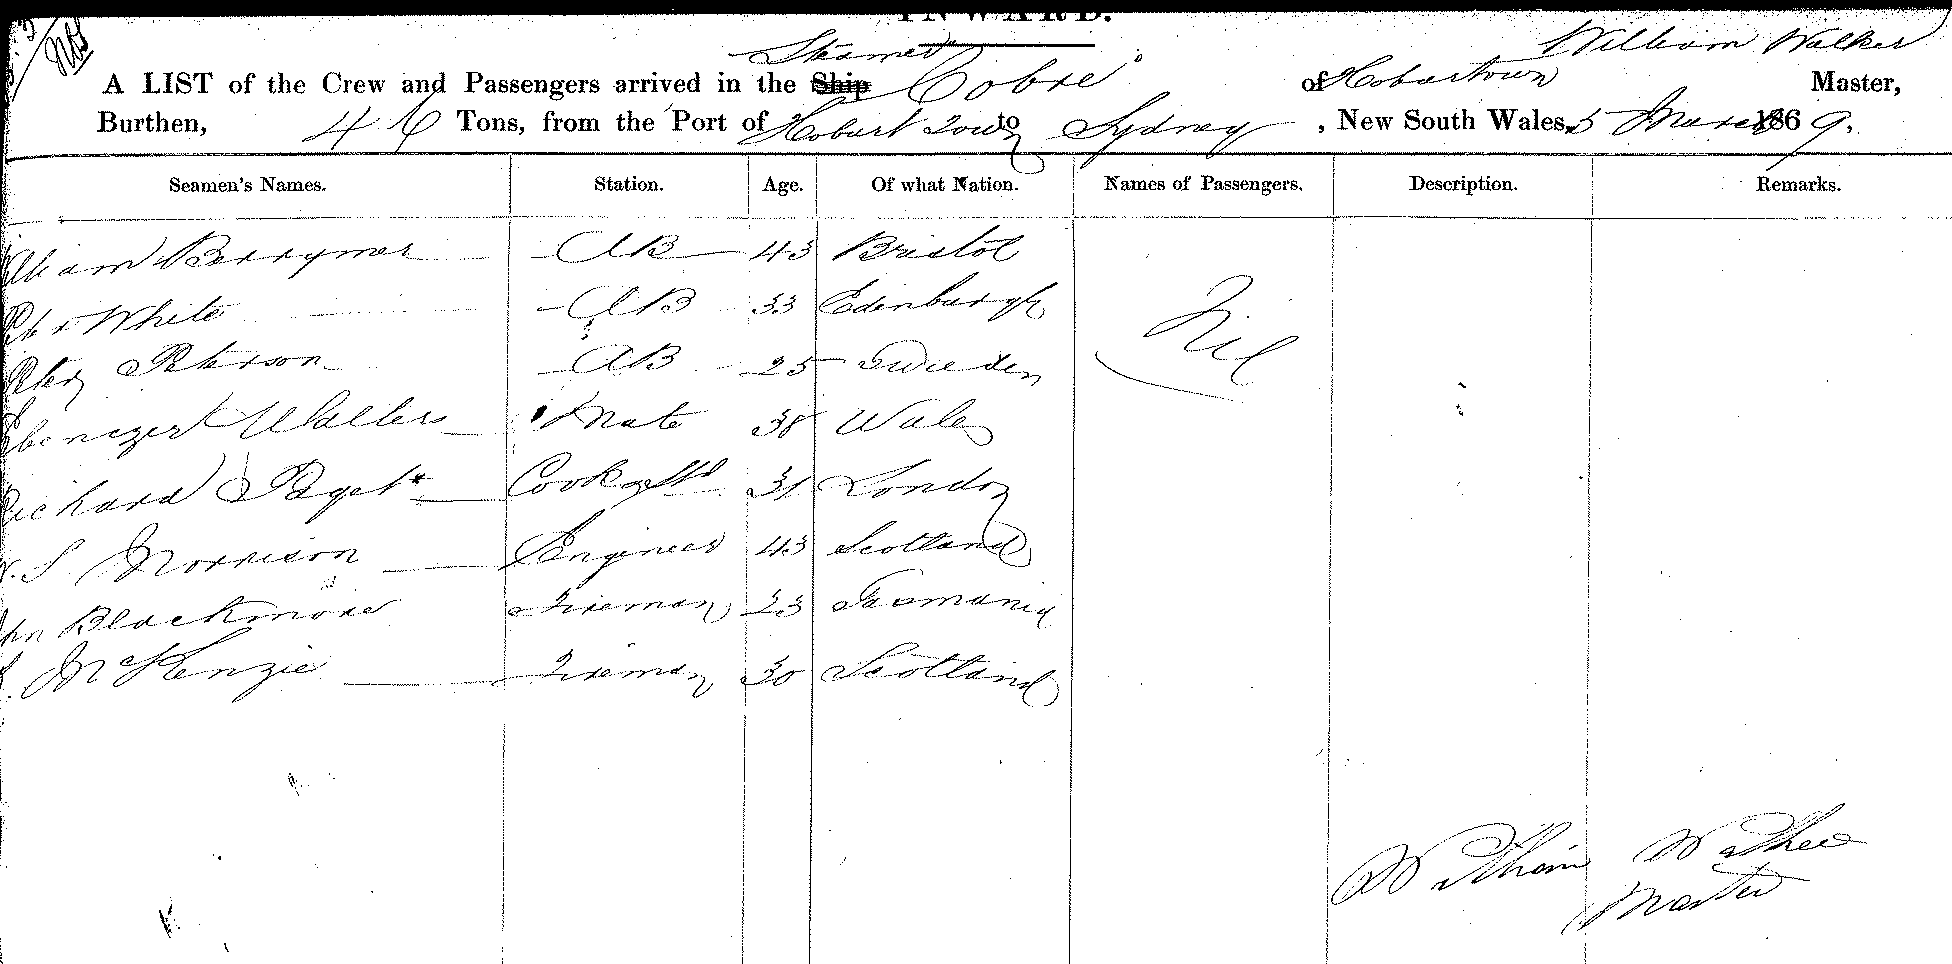 INWARD.
Steamer William Walker
A LIST of the Crew and Passengers arrived in the Ship Cobre of Hobartown Master,
Burthen, 46 Tons, from the Port of Hobart Town to Sydney, New South Wales, 5 March 1869.
Seamen's Names. Station. Age. Of what Nation. Names of Passengers. Description. Remarks.
lliam Berrymor AB 43 Bristol
Peter White AB 33 Edenburgh Nil
Peter Peterson AB 25 Sweeden
Ebenezer Walters Mate 38 Wales
Richard Paget Cook & Std 31 London
S Morrison Engineer 43 Scotland
ohn Blackmore Fireman 23 Tasmania
McKenzie Fireman 30 Scotland
William Walker
Master